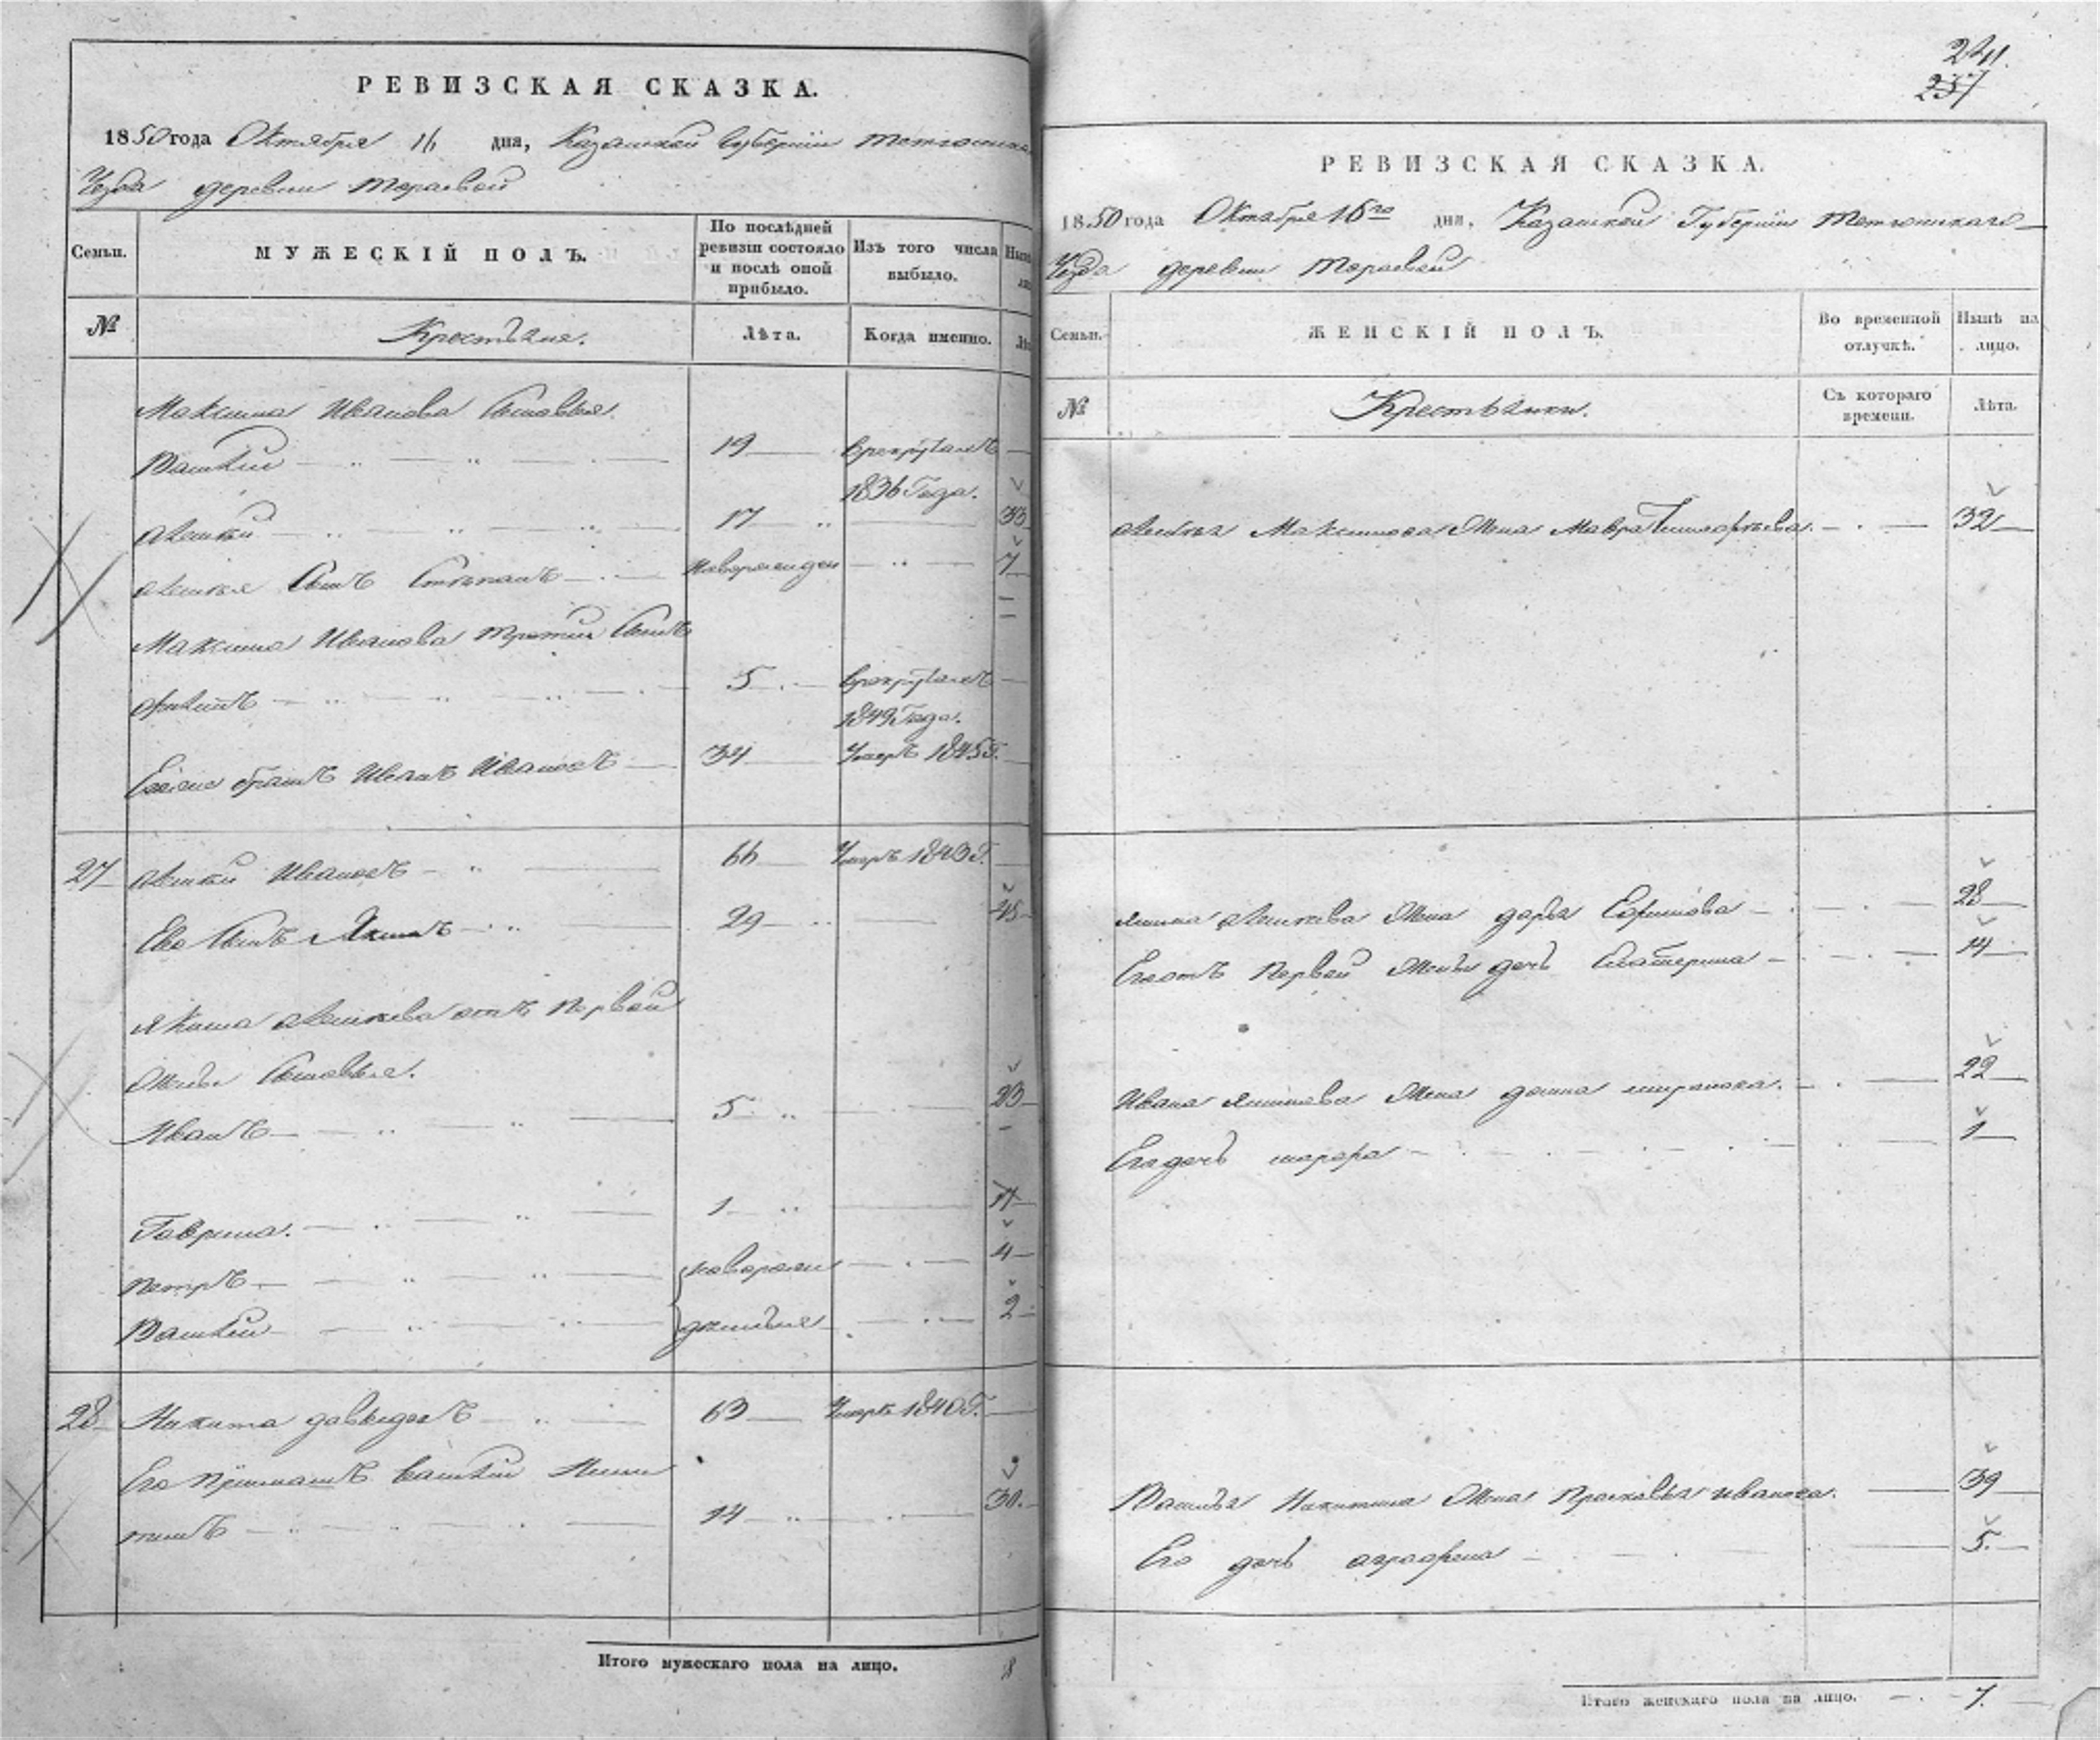 РЕВИЗСКАЯ СКАЗКА.
1850 года Октября 16 дня, Казанской Губернiи Тетюшска
Уезда деревни
Семьи. МУЖЕСКIЙ ПОЛЪ. По послѣдней ревизiи состояло и послѣ оной прибыло. Изъ того числа выбыло.
№ Крестьяне. Лѣта. Когда именно.
Максима Иванова Сыновья.
Василiй 19 в рекрутахъ
1836 Года.
Алексѣй 17 33
Алексѣя Сынъ Степанъ Новорожден 7
Максима Иванова третiй Сынъ
Филипъ 5 в рекрутахъ
1849 Года.
братъ Иванъ Ивановъ 34 Умеръ 1845 Г.
27 Алексѣй Ивановъ 66 Умеръ 1843 Г.
Ево Сынъ Якимъ 29 45
Якима Алексѣева отъ первой
Жены Сыновья.
Иванъ 5 23
Гаврила. 1 17
Петръ новорож 4
Василiй денные 2
28 Никита Давыдовъ 63 Умеръ 1840 Г.
Его Прiимышъ Василiй Ники
тинъ 14 30.
Итого мужескаго пола на лицо. 8
241.
237
РЕВИЗСКАЯ СКАЗКА.
1850 года Октября 16го дня, Казанской Губернiи Тетюшскаго
Уезда деревни
Семьи. ЖЕНСКIЙ ПОЛЪ. Во временной отлучкѣ. Нынѣ на лицо.
№ Крестьянки. Съ котораго времени. Лѣта.
Алексѣя Максимова Жена Мавра 32
Якима Алексѣева Жена Дарья 28
Его отъ Первой Жены дочь Екатерина 14
Ивана Якимова Жена 22
Его дочь 1
Василья Никитина Жена Прасковья Иванова. 39
Его дочь Аграфена 5.
Итого женскаго пола на лицо. 7.